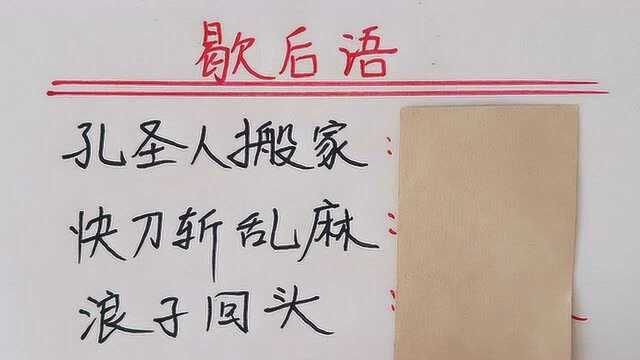 歇后语
孔圣人搬家：
快刀斩乱麻：
浪子回头：